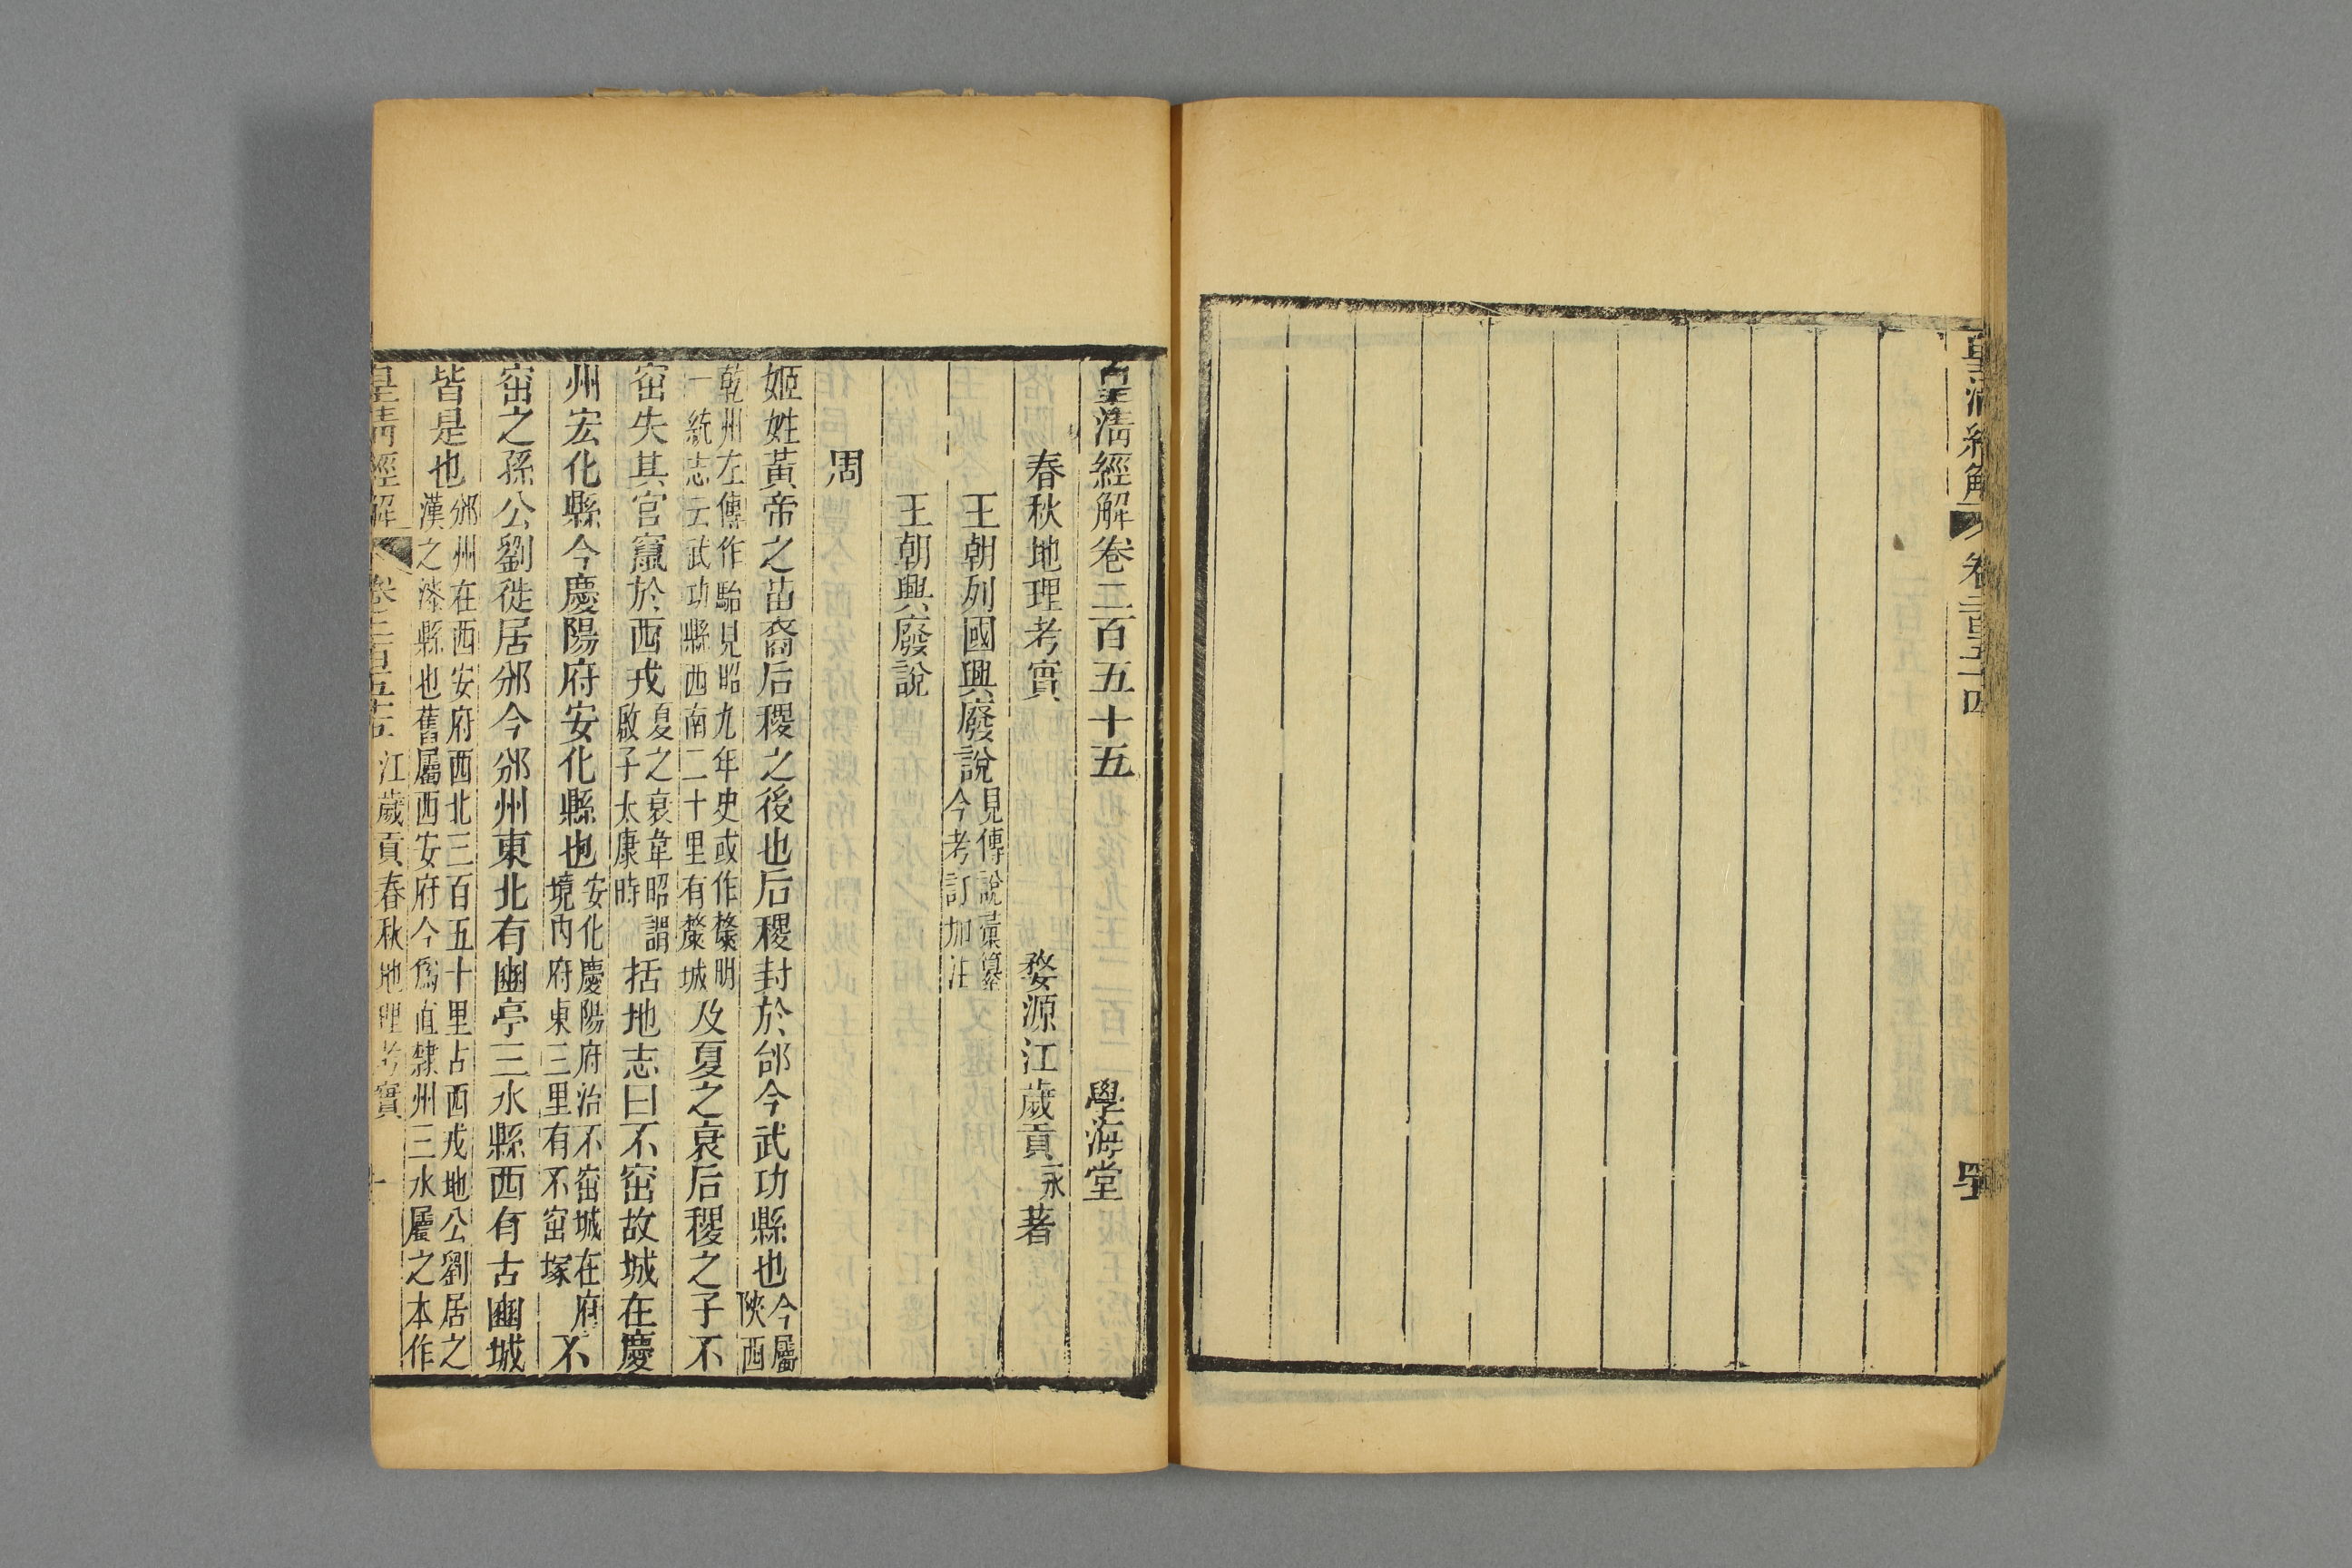 皇清經解 卷二百五十四
皇清經解卷二百五十五 學海堂
春秋地理考實 婺源江歲貢永著
王朝列國興廢說見傳說彙纂今考訂加注
王朝興廢說
周
姬姓黃帝之苗裔后稷之後也后稷封於邰今武功縣也今屬陝西
乾州左傳作駘見昭九年史或作斄明一統志云武功縣西南二十里有斄城及夏之衰后稷之子不
窋失其官竄於西戎夏之衰韋昭謂啟子太康時括地志曰不窋故城在慶
州宏化縣今慶陽府安化縣也安化慶陽府治不窋城在府境內府東三里有不窋塚不
窋之孫公劉徙居邠今邠州東北有豳亭三水縣西有古豳城
皆是也邠州在西安府西北三百五十里古西戎地公劉居之漢之漆縣也舊屬西安府今爲直隸州三水屬之本作
皇清經解 卷二百五十五 江歲貢春秋地理考實 一